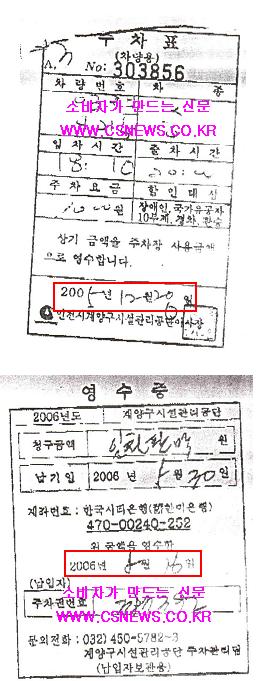 주차표
(차량용)
No: 303856
차량번호 차종
소비자가 만드는 신문
WWW.CSNEWS.CO.KR
입차시간 출차시간
18:10 20:
주차요금 할인대상
원 장애인,국가유공자
10부제, 경차, 환승
상기 금액을 주차장 사용금액
으로 영수합니다.
200 년 12월 20일
인천시계양구시설관리공단이사장
영수증
2006년도 계양구시설관리공단
청구금액 원
납기일 2006 년 5월 30일
계좌번호 : 한국시티은행(舊한미은행)
470-00240-252
위 금액을 영수함
2006년 5월 일
(납입자)
소비자가 만드는 신문
주차권번호
WWW.CSNEWS.CO.KR
문의전화 : 032) 450-5782~3
계양구시설관리공단 주차관리팀
(납입자보관용)